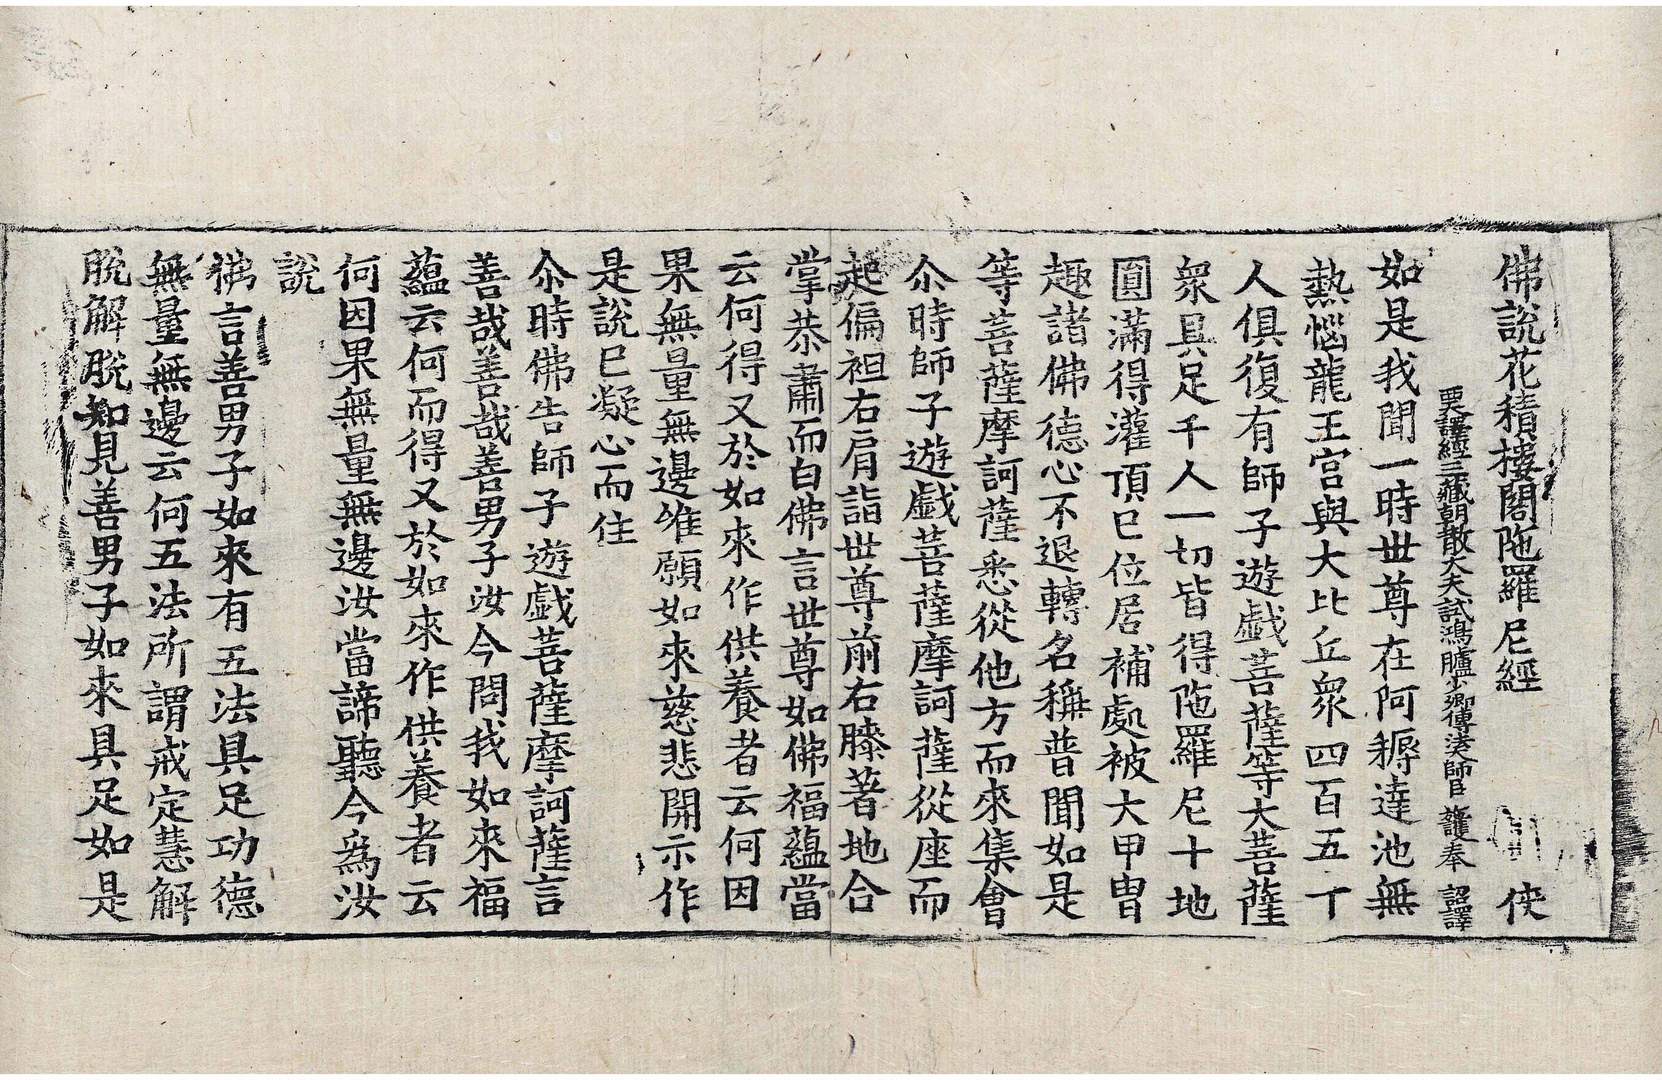 佛說花積樓閣陁羅尼經 俠
西天譯經三藏朝散大夫試鴻臚少卿傳法大師臣 施護奉 詔譯
如是我聞一時世尊在阿耨達池無
熱惱龍王宮與大比丘衆四百五十
人俱復有師子遊戲菩薩等大菩薩
衆具足千人一切皆得陁羅尼十地
圓滿得灌頂巳位居補處被大甲冑
趣諸佛德心不退轉名稱普聞如是
等菩薩摩訶薩悉從他方而來集會
尒時師子遊戲菩薩摩訶薩從座而
起偏袒右肩詣世尊前右膝著地合
掌恭肅而白佛言世尊如佛福蘊當
云何得又於如來作供養者云何因
果無量無邊唯願如來慈悲開示作
是說巳凝心而住
尒時佛告師子遊戲菩薩摩訶薩言
善哉善哉善男子汝今問我如來福
蘊云何而得又於如來作供養者云
何因果無量無邊汝當諦聽今爲汝
說
佛言善男子如來有五法具足功德
無量無邊云何五法所謂戒定慧解
脫解脫知見善男子如來具足如是